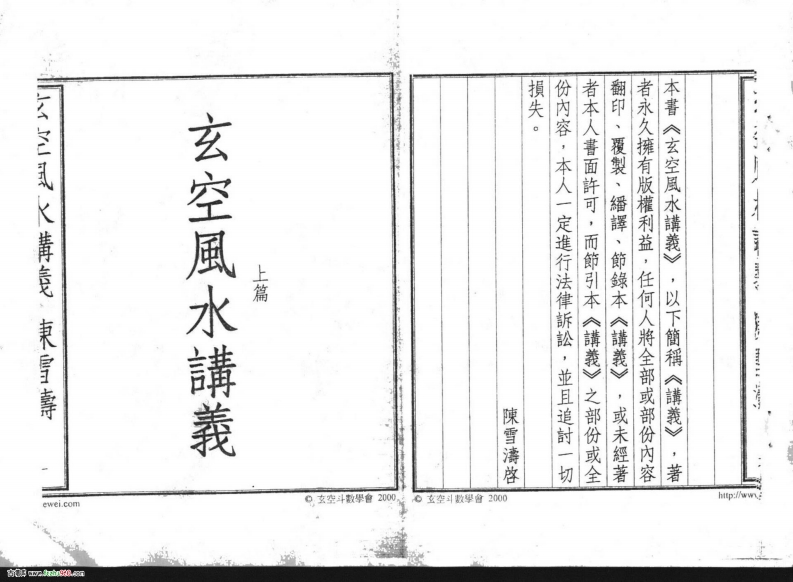 本書《玄空風水講義》，以下簡稱《講義》，著
者永久擁有版權利益，任何人將全部或部份內容
翻印、覆製、繙譯、節錄本《講義》，或未經著
者本人書面許可，而節引本《講義》之部份或全
份內容，本人一定進行法律訴訟，並且追討一切
損失。
陳雪濤啓
© 玄空斗數學會 2000
http://www
上篇
玄空風水講義
玄空風水講義 陳雪濤
一
ewei.com
© 玄空斗數學會 2000